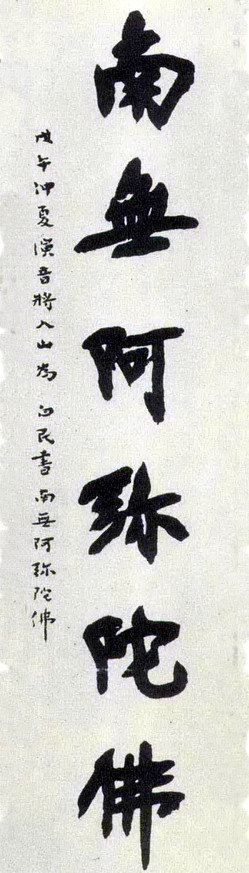 南無阿弥陀佛
戊午仲夏演音將入山為白民書南無阿弥陀佛